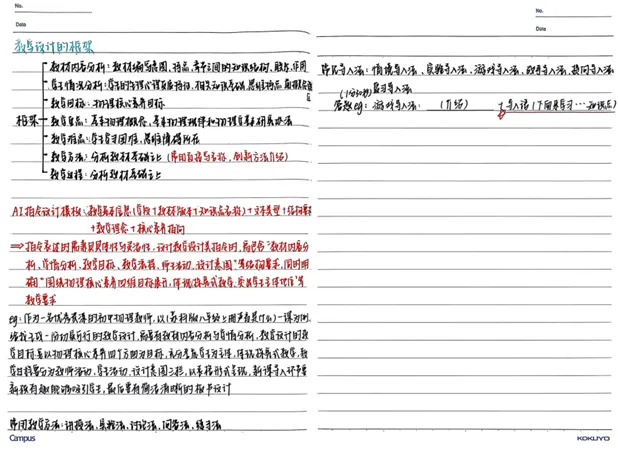 No.
Date
教学设计的框架
教材内容分析：教材编写意图、特点、章节之间的知识结构、地位、作用
学生情况分析：学习的物理心理发展特征、相关知识基础、思维特点
教学目标：物理核心素养目标
框架 教学重点：基本物理概念、基本物理规律和物理学基本研究方法
教学难点：学生学习困难、思维障碍所在
教学方法：分析教材基础之上（常用直接写名称，创新方法介绍）
教学过程：分析教材基础之上
AI指令设计模板：教学基本信息（学段+教材版本+知识点名称）+文本类型+结构要求
+教学理念+核心素养指向
⇒ 指令表述时需兼具具体性与灵活性，设计教学设计类指令时，需包含“教材内容分
析、学情分析、教学目标、教学流程、师生活动、设计意图”等结构要求，同时明
确“围绕物理核心素养四维目标展开，体现探究式教学、突出学生主体地位”等
教学要求
eg：作为一名优秀菜满的初中物理教师，以《苏科版八年级上册声音是什么》一课为例
给我生成一份切实可行的教学设计，需要有教材内容分析与学情分析，教学设计的教
学目标要以物理核心素养四个方面为目标，充分考虑学生为主体，体现探究式教学，教
学过程要分为教师活动、学生活动、设计意图三栏，以表格形式呈现，新课导入环节要
新颖有趣能够吸引学生，最后要有简洁清晰的板书设计
常用教学方法：讲授法、实验法、讨论法、问答法、练习法
Campus
No.
Date
常见导入法：情境导入法、实验导入法、游戏导入法、故事导入法、提问导入法
（1分30秒）复习导入法
答题eg：游戏导入法：（介绍）+导入语（下面来学习…知识点）
KOKUYO